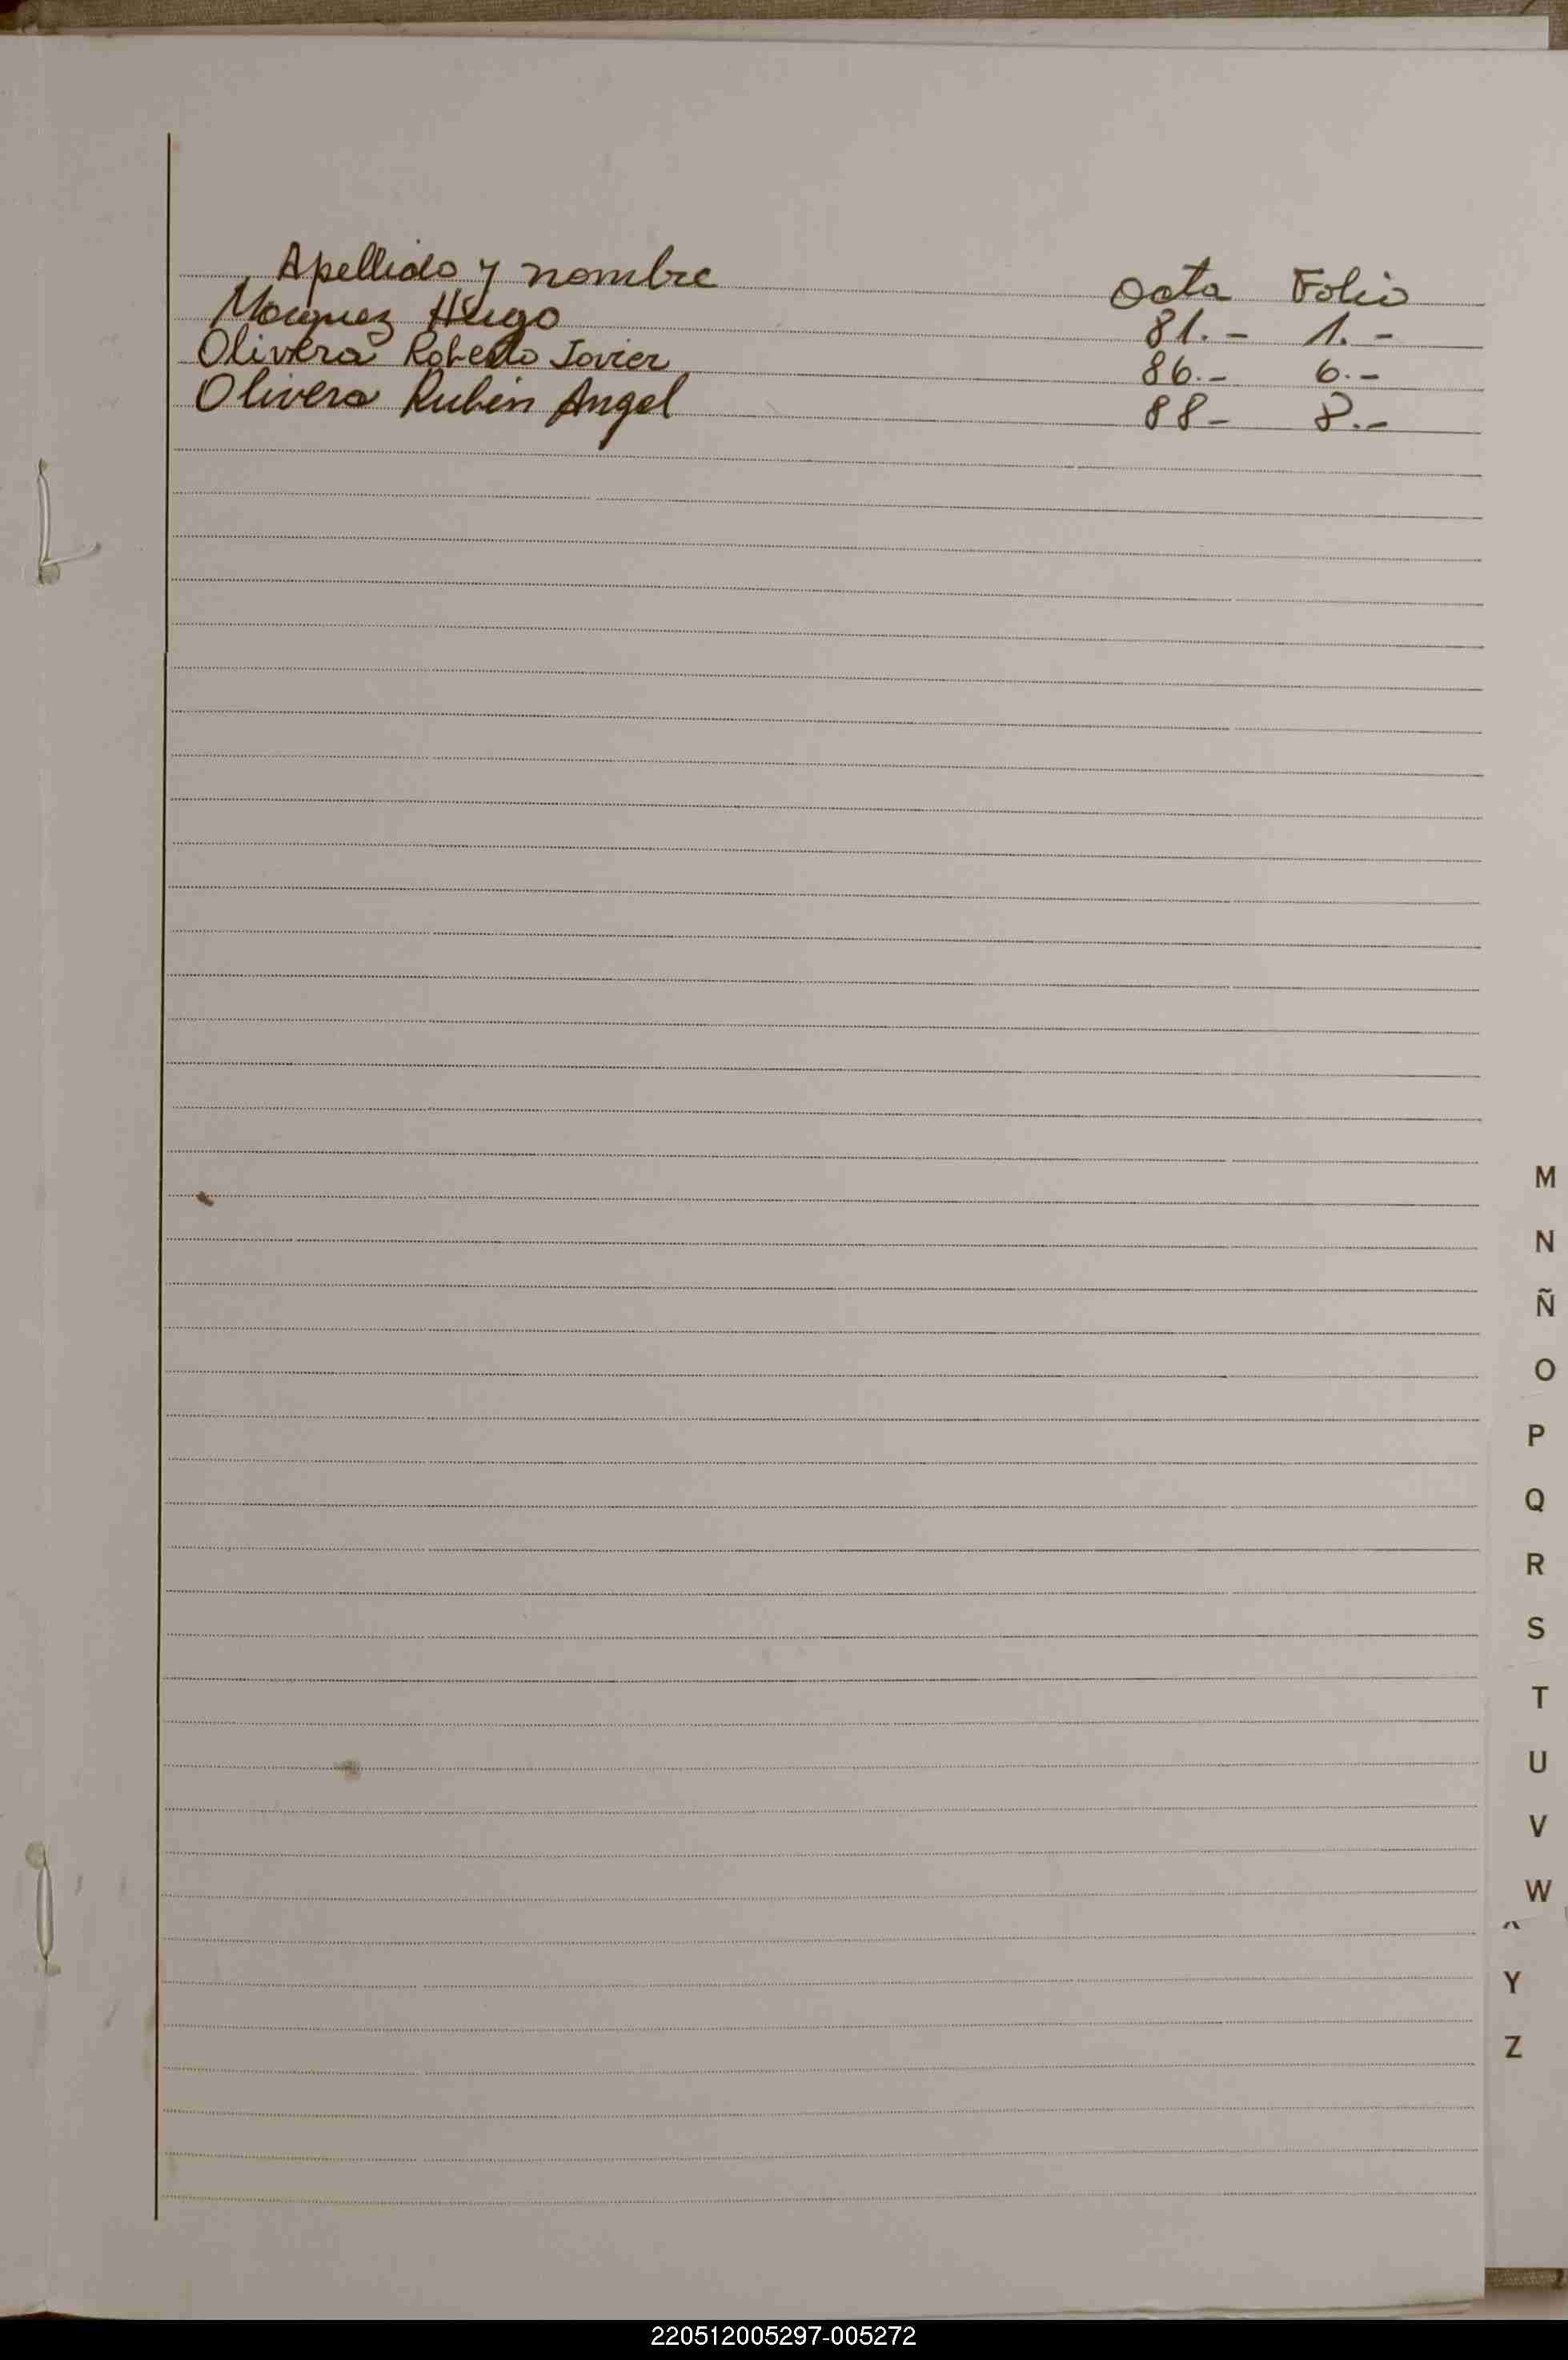 Apellido y nombre Acta Folio
Marquez Hugo 81.- 1.-
Olivera Roberto Javier 86.- 6.-
Olivera Ruben Angel 88- 8.-
M
N
Ñ
O
P
Q
R
S
T
U
V
W
Y
Z
220512005297-005272